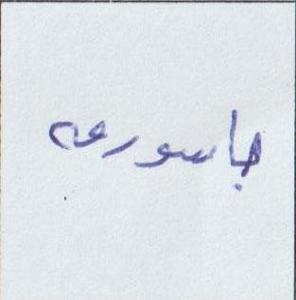 جاسورمه